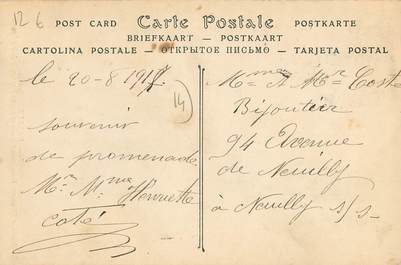 12 6
POST CARD Carte Postale POSTKARTE
BRIEFKAART — POSTKAART
CARTOLINA POSTALE — ОТКРЫТОЕ ПИСЬМО — TARJETA POSTAL
le 20-8 1917
14
souvenir
de promenade
Mr Mme Henriette
coté
Mme & Mr Coste
Bijoutier
94 Avenue
de Neuilly
à Neuilly s/s-